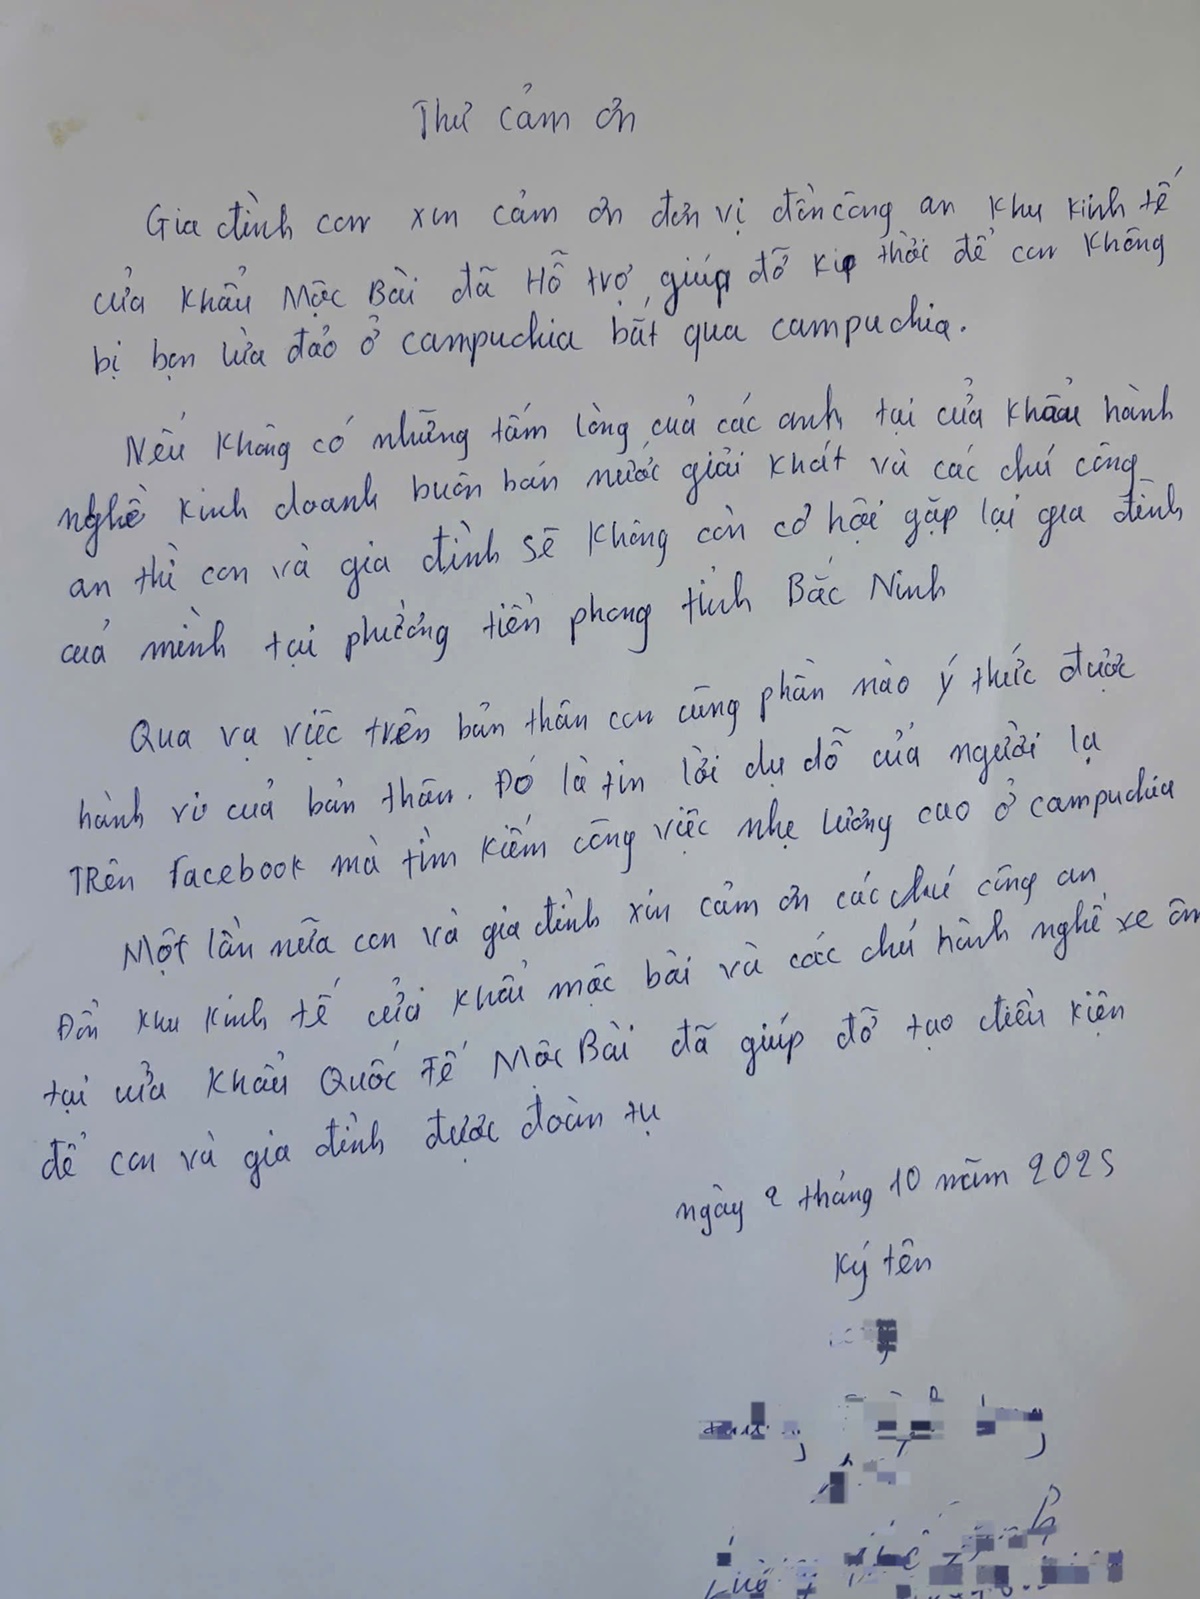 Thư cảm ơn
Gia đình con xin cảm ơn đơn vị đồn công an khu kinh tế
cửa khẩu Mộc Bài đã Hỗ trợ, giúp đỡ kịp thời để con không
bị bạn lừa đảo ở campuchia bắt qua campuchia.
Nếu không có những tấm lòng của các anh tại cửa khẩu hành
nghề kinh doanh buôn bán nước giải khát và các chú công
an thì con và gia đình sẽ không còn cơ hội gặp lại gia đình
của mình tại phường tiền phong tỉnh Bắc Ninh
Qua vụ việc trên bản thân con cũng phần nào ý thức được
hành vi của bản thân. Đó là tin lời dụ dỗ của người lạ
TRên facebook mà tìm kiếm công việc nhẹ lương cao ở campuchia
Một lần nữa con và gia đình xin cảm ơn các chú công an
Đồn khu kinh tế cửa khẩu mộc bài và các chú hành nghề xe ôm
tại cửa khẩu Quốc Tế Mộc Bài đã giúp đỡ tạo điều kiện
để con và gia đình được đoàn tụ
ngày 2 tháng 10 năm 2025
Ký tên